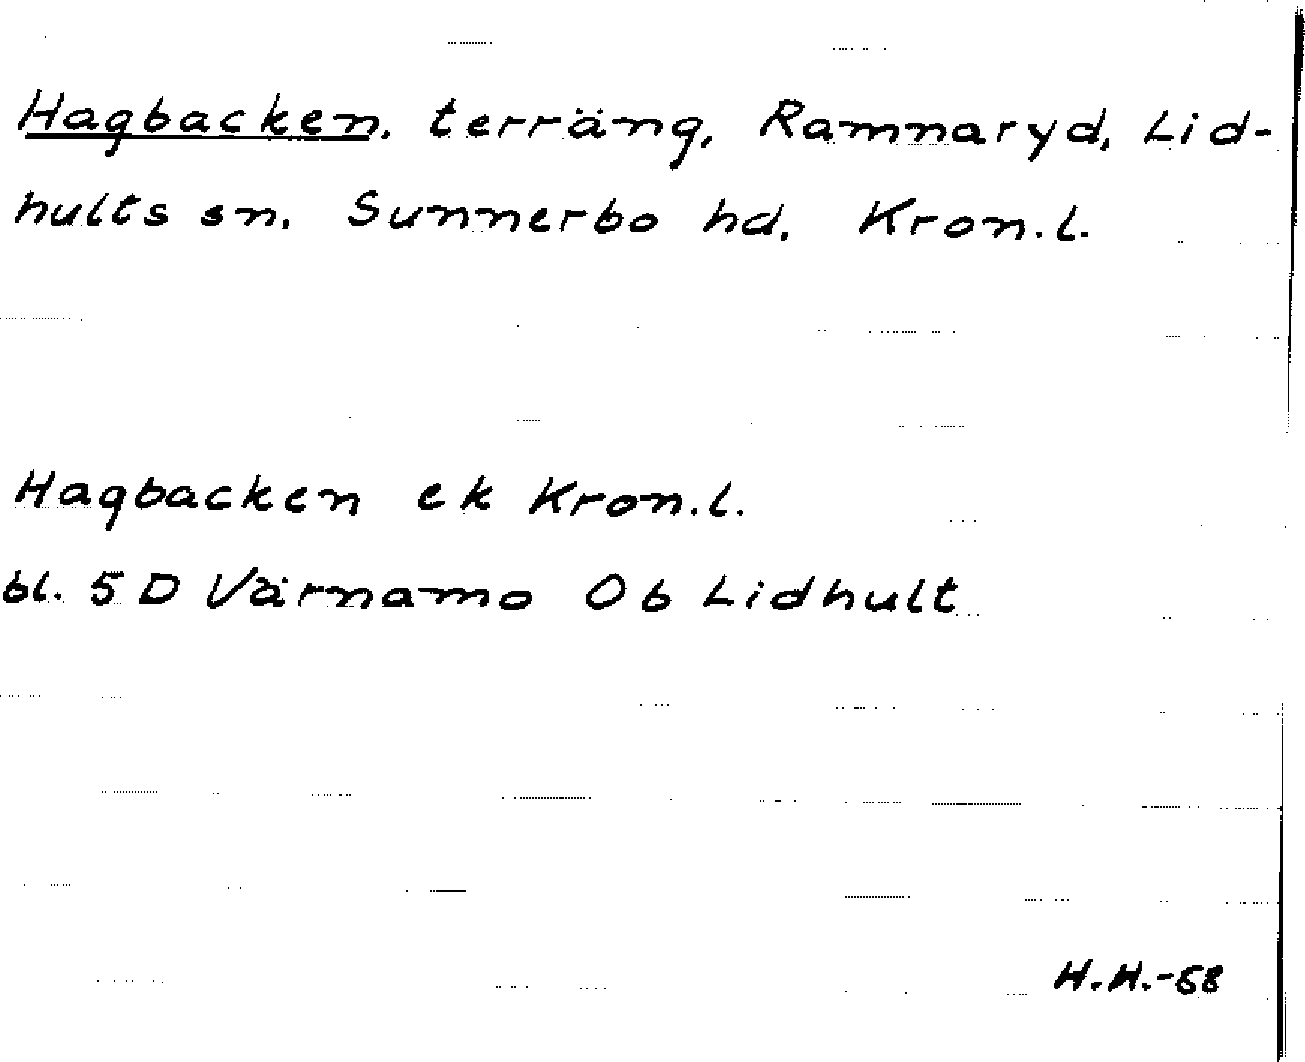 Hagbacken, terräng, Ramnaryd, Lid-
hults sn. Sunnerbo hd. Kron.l.
Hagbacken ek Kron.l.
bl. 5 D Värnamo 0b Lidhult
H.H.-68